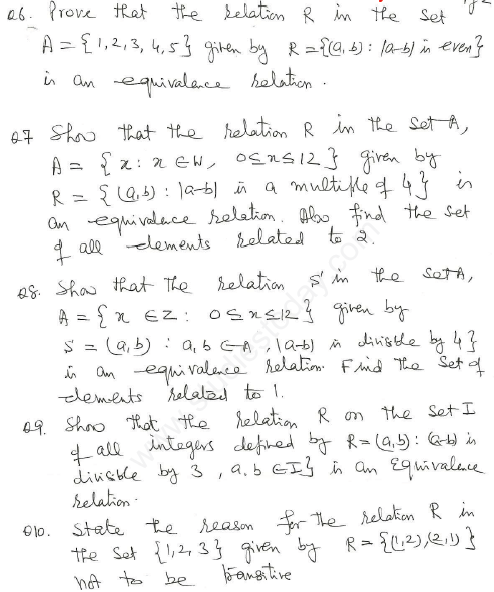 Q6. Prove that the relation R in the set
A = {1, 2, 3, 4, 5} given by R = {(a, b) : |a-b| is even}
is an equivalence relation.
Q7 Show that the relation R in the set A,
A = { x : x ∈ W, 0 ≤ x ≤ 12 } given by
R = { (a, b) : |a-b| is a multiple of 4 } is
an equivalence relation. Also find the set
of all elements related to 2.
Q8. Show that the relation S in the set A,
A = { x ∈ Z : 0 ≤ x ≤ 12 } given by
S = (a, b) : a, b ∈ A, |a-b| is divisible by 4 }
is an equivalence relation. Find the set of
elements related to 1.
Q9. Show that the relation R on the set I
of all integers defined by R = (a, b) : (a-b) is
divisible by 3, a, b ∈ I } is an Equivalence
relation.
Q10. State the reason for the relation R in
the set {1, 2, 3} given by R = {(1, 2), (2, 1)}
not to be transitive
www.studiestoday.com